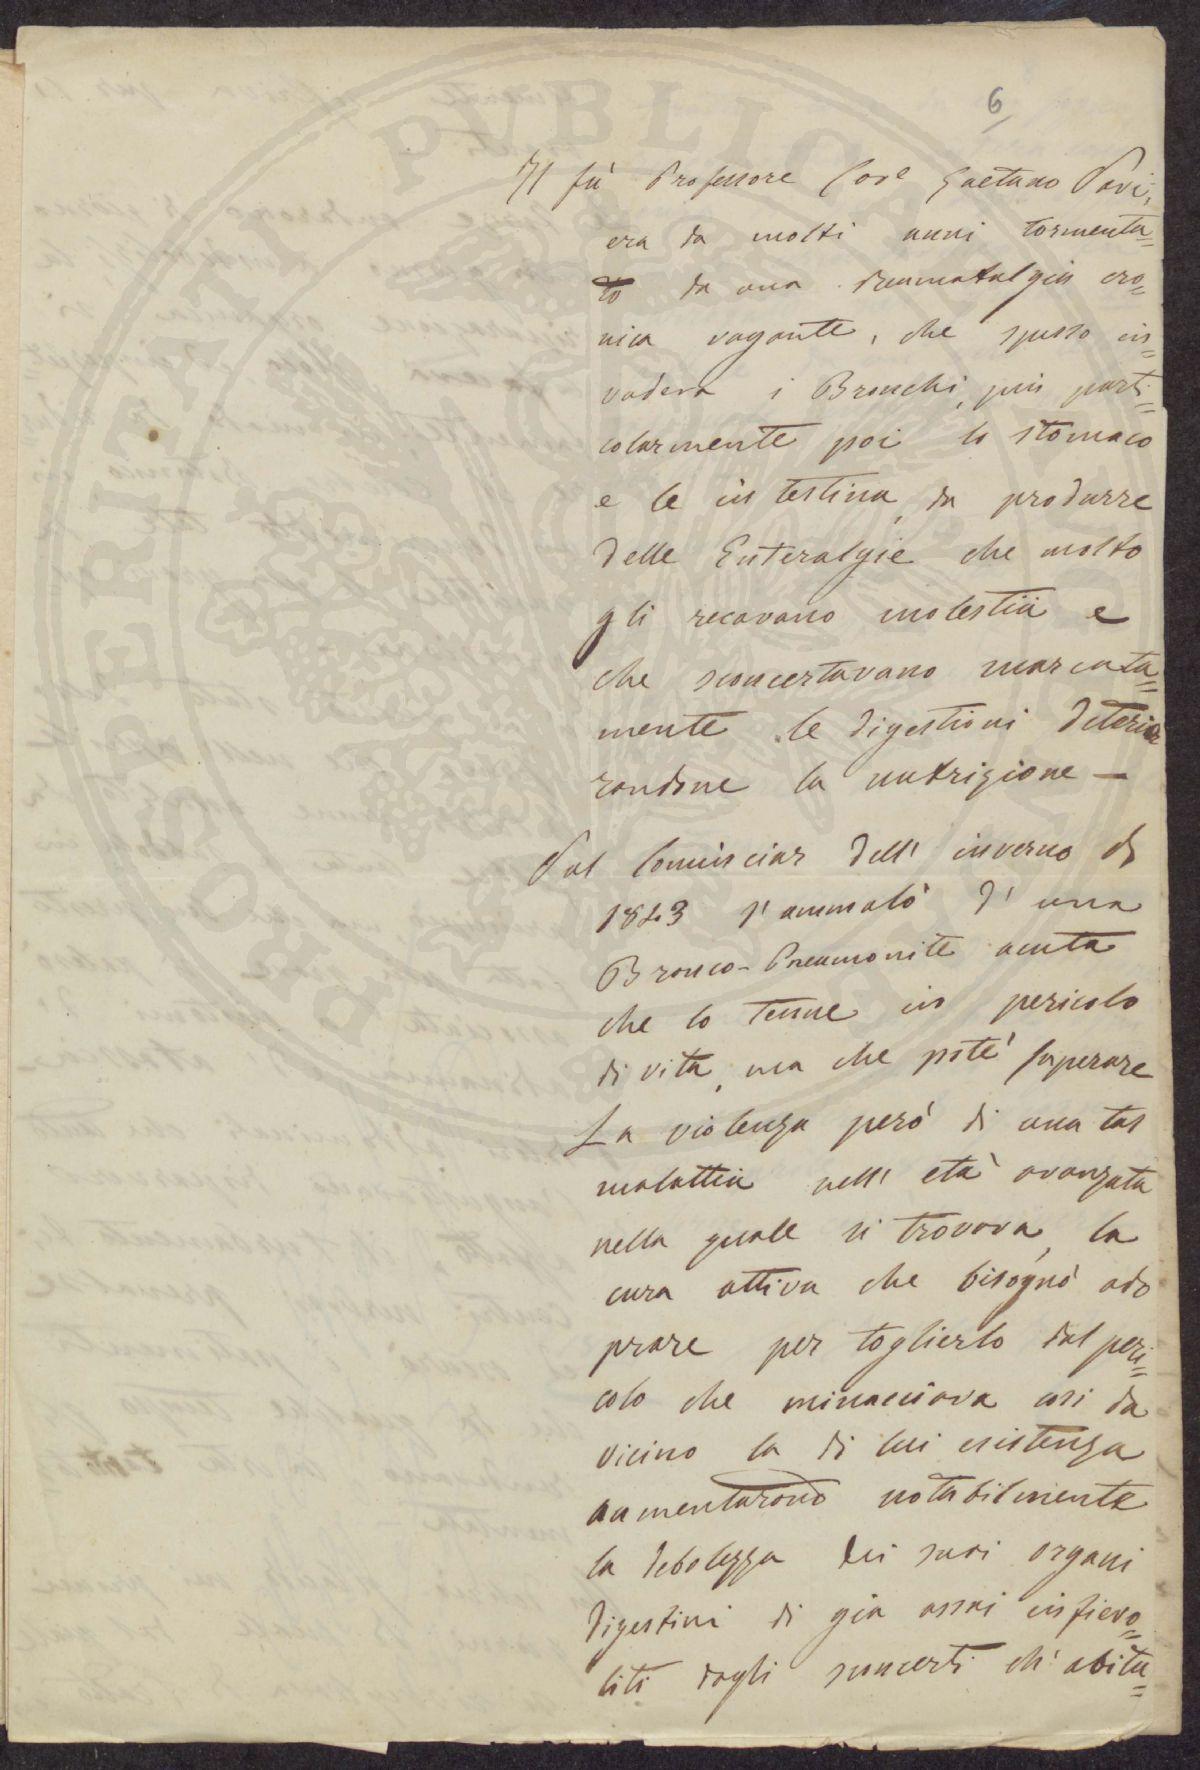 6
Il fù Professore Cav.e Gaetano Savi,
era da molti anni tormenta=
to da una reumatalgia cro=
nica vagante, che spesso in=
vadeva i Bronchi, più parti=
colarmente poi lo stomaco
e le intestina, da produrre
delle Enteralgie che molto
gli recavano molestia e
che sconcertavano marcata=
mente le digestioni deterio
randone la nutrizione —
Sul Cominciar dell' inverno di
1843 s' ammalò d' una
Bronco-Pneumonite acuta
che lo tenne in pericolo
di vita, ma che potè superare
La violenza però di una tal
malattia nell' età avanzata
nella quale si trovava, la
cura attiva che bisognò ado
prare per toglierlo dal peri=
colo che minacciava così da
vicino la di lui esistenza
aumentarono notabilmente
la debolezza dei suoi organi
digestivi di già assai infievo=
liti dagli sconcerti ch' abitu=
PROSPERITATI PUBLICAE